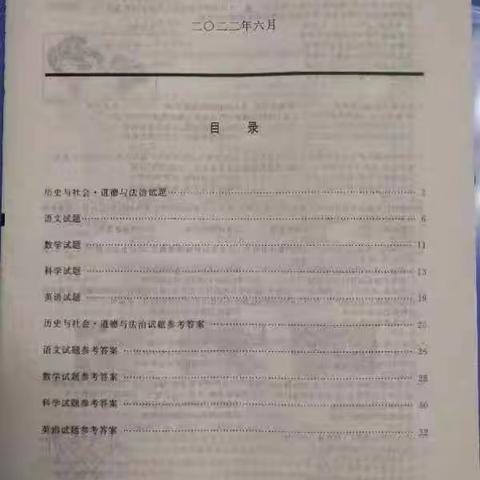 二〇二二年六月
目 录
历史与社会·道德与法治试题
语文试题 6
数学试题 11
科学试题 13
英语试题 19
历史与社会·道德与法治试题参考答案
语文试题参考答案
数学试题参考答案
科学试题参考答案 30
英语试题参考答案 32